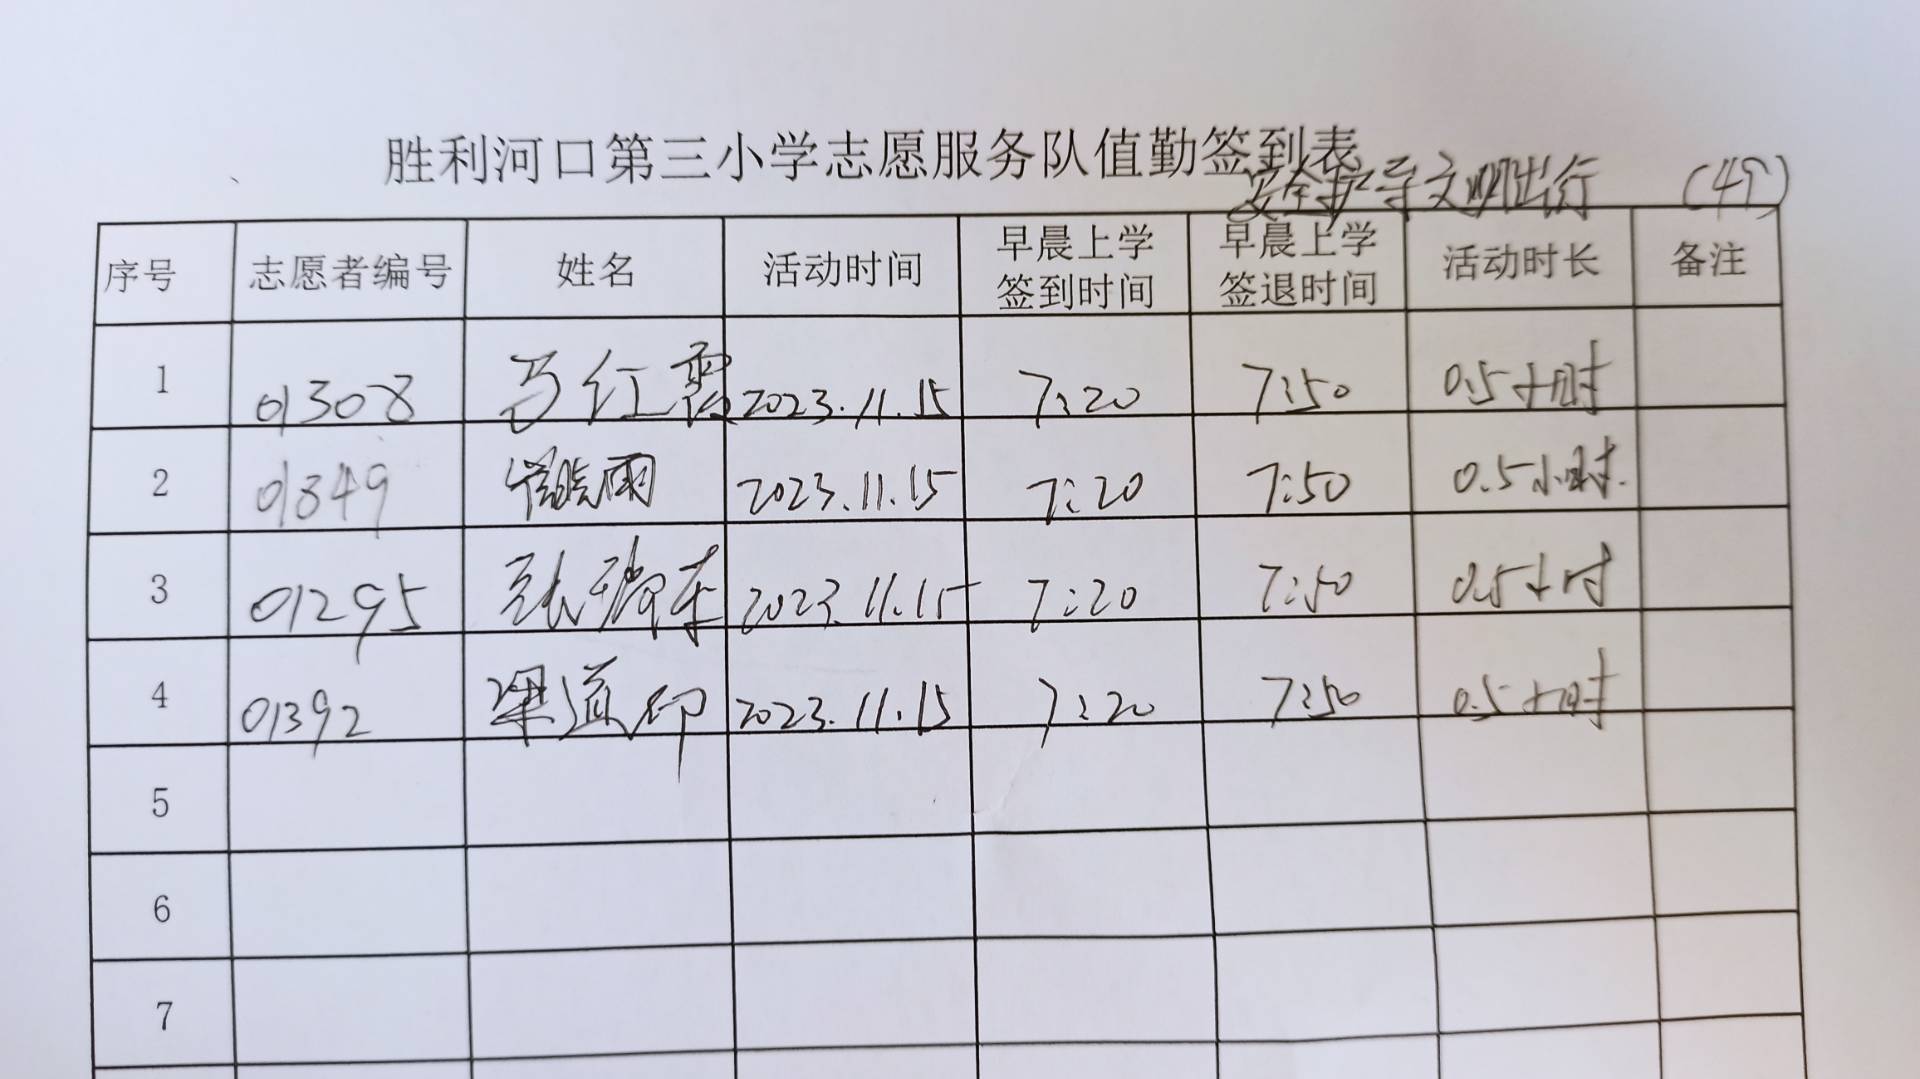 胜利河口第三小学志愿服务队值勤签到表
安全护导文明出行 (49)
序号 志愿者编号 姓名 活动时间 早晨上学签到时间 早晨上学签退时间 活动时长 备注
1 01308 马红霞 2023.11.15 7:20 7:50 0.5小时
2 01349 晓雨 2023.11.15 7:20 7:50 0.5小时.
3 01295 张瑞东 2023.11.15 7:20 7:50 0.5小时
4 01392 梁道印 2023.11.15 7:20 7:50 0.5小时
5
6
7